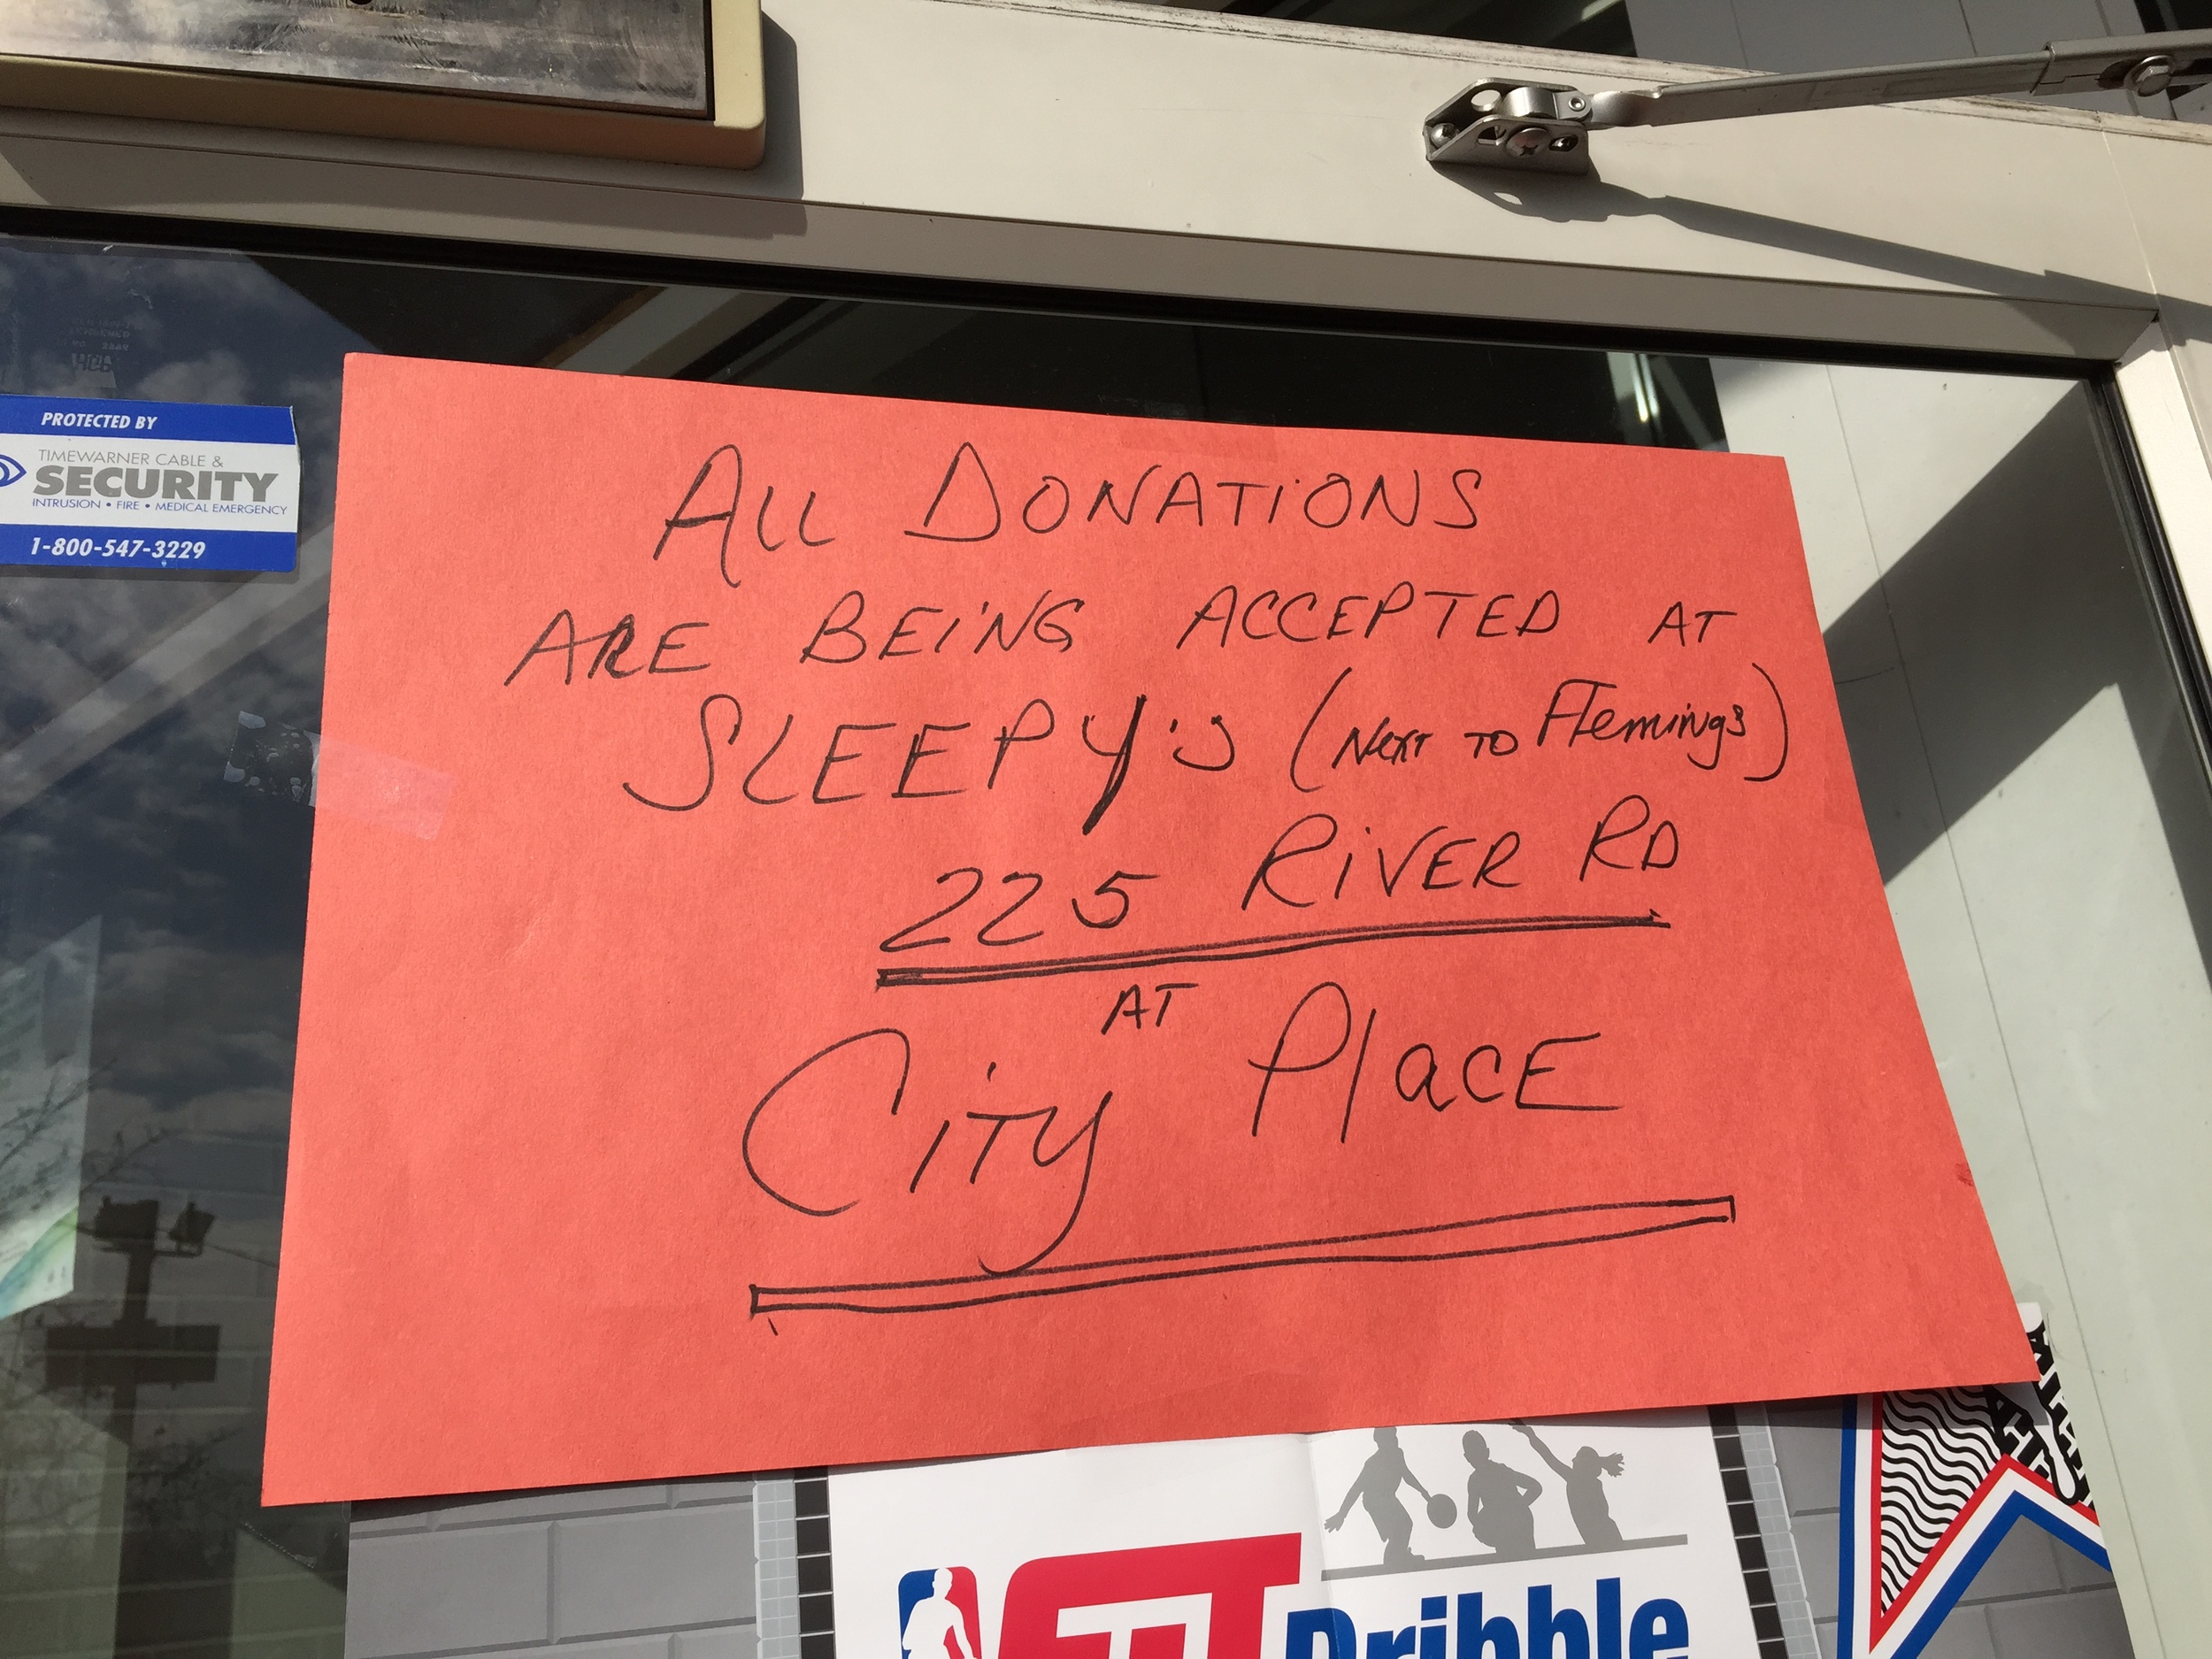 PROTECTED BY
TIMEWARNER CABLE &
SECURITY
INTRUSION • FIRE • MEDICAL EMERGENCY
1-800-547-3229
ALL DONATIONS
ARE BEING ACCEPTED AT
SLEEPY'S (NEXT TO Flemings)
225 RIVER RD
AT
CITY PlaCE
FIT
Dribble